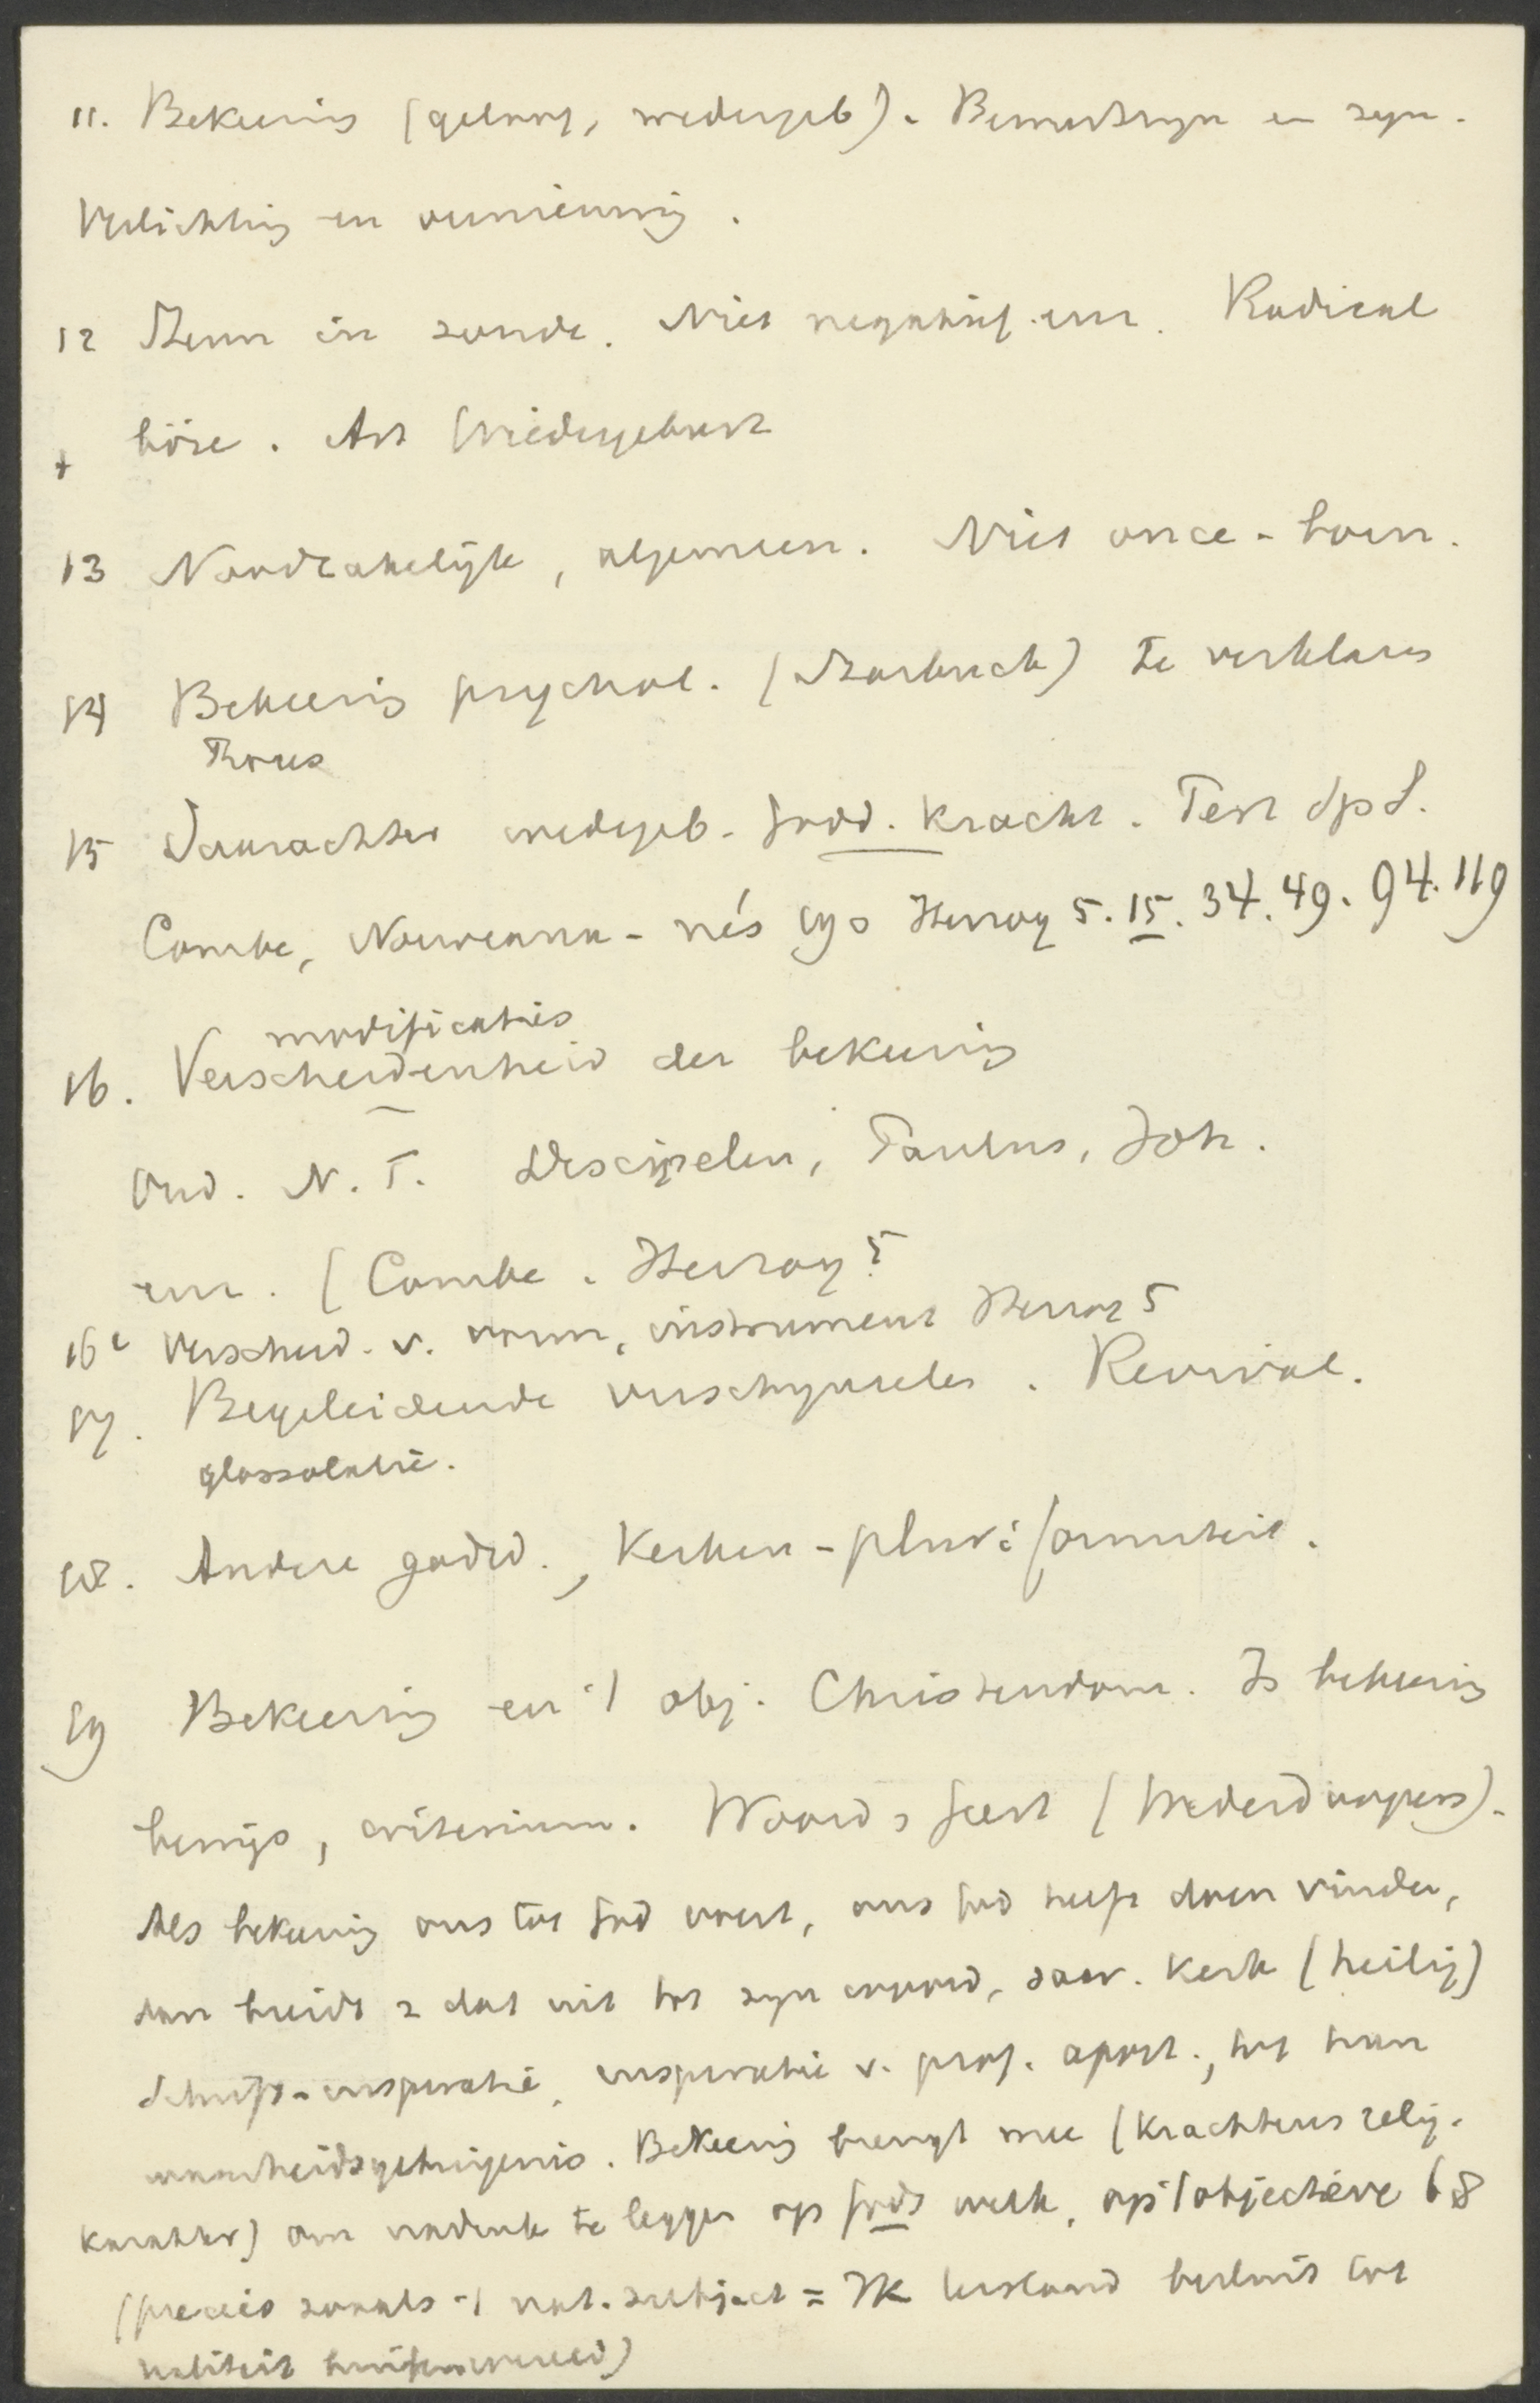 11. Bekeering (geloof, wedergeb). Bewustzijn en zijn.
Verlichting en vernieuwing.
12 Kern in zonde. Niet negatief. enz. Radical
böse. Art Wiedergeburt
13 Noodzakelijk, algemeen. Niet once-born.
14 Bekeering psychol. (Starbuck) te verklaren
Proces
15 Daarachter wedergeb. Godd. Kracht. Test
Combe, Nouveaux-nés 190 Herzog 5. 15. 34. 49. 94. 119
modificaties
16. Verscheidenheid der bekeering
Oud. N. T. Discipelen, Paulus, Joh.
enz. (Combe. Herzog 5
16e verscheid. v. vorm, instrument Herzog 5
17. Begeleidende verschijnselen. Revival.
glossolalie.
18. Andere godsd., Kerken-pluriformiteit.
19 Bekeering en 't obj. Christendom. Is bekeering
bewijs, criterium. Woord & Geest (Wederdoopers).
Als bekeering ons tot God voert, ons God heeft doen vinden,
dan breidt z dat uit tot zijn woord, Kerk (heilig)
Schrift-inspiratie, inspiratie v. prof. apost., tot hun
waarheidsgetuigenis. Bekeering brengt mee (krachtens relig.
karakter) om nadruk te leggen op Gods werk, op 't objectieve 68
(precies zooals 't nat. subject = IK verstand besluit tot
realiteit buitenwereld)